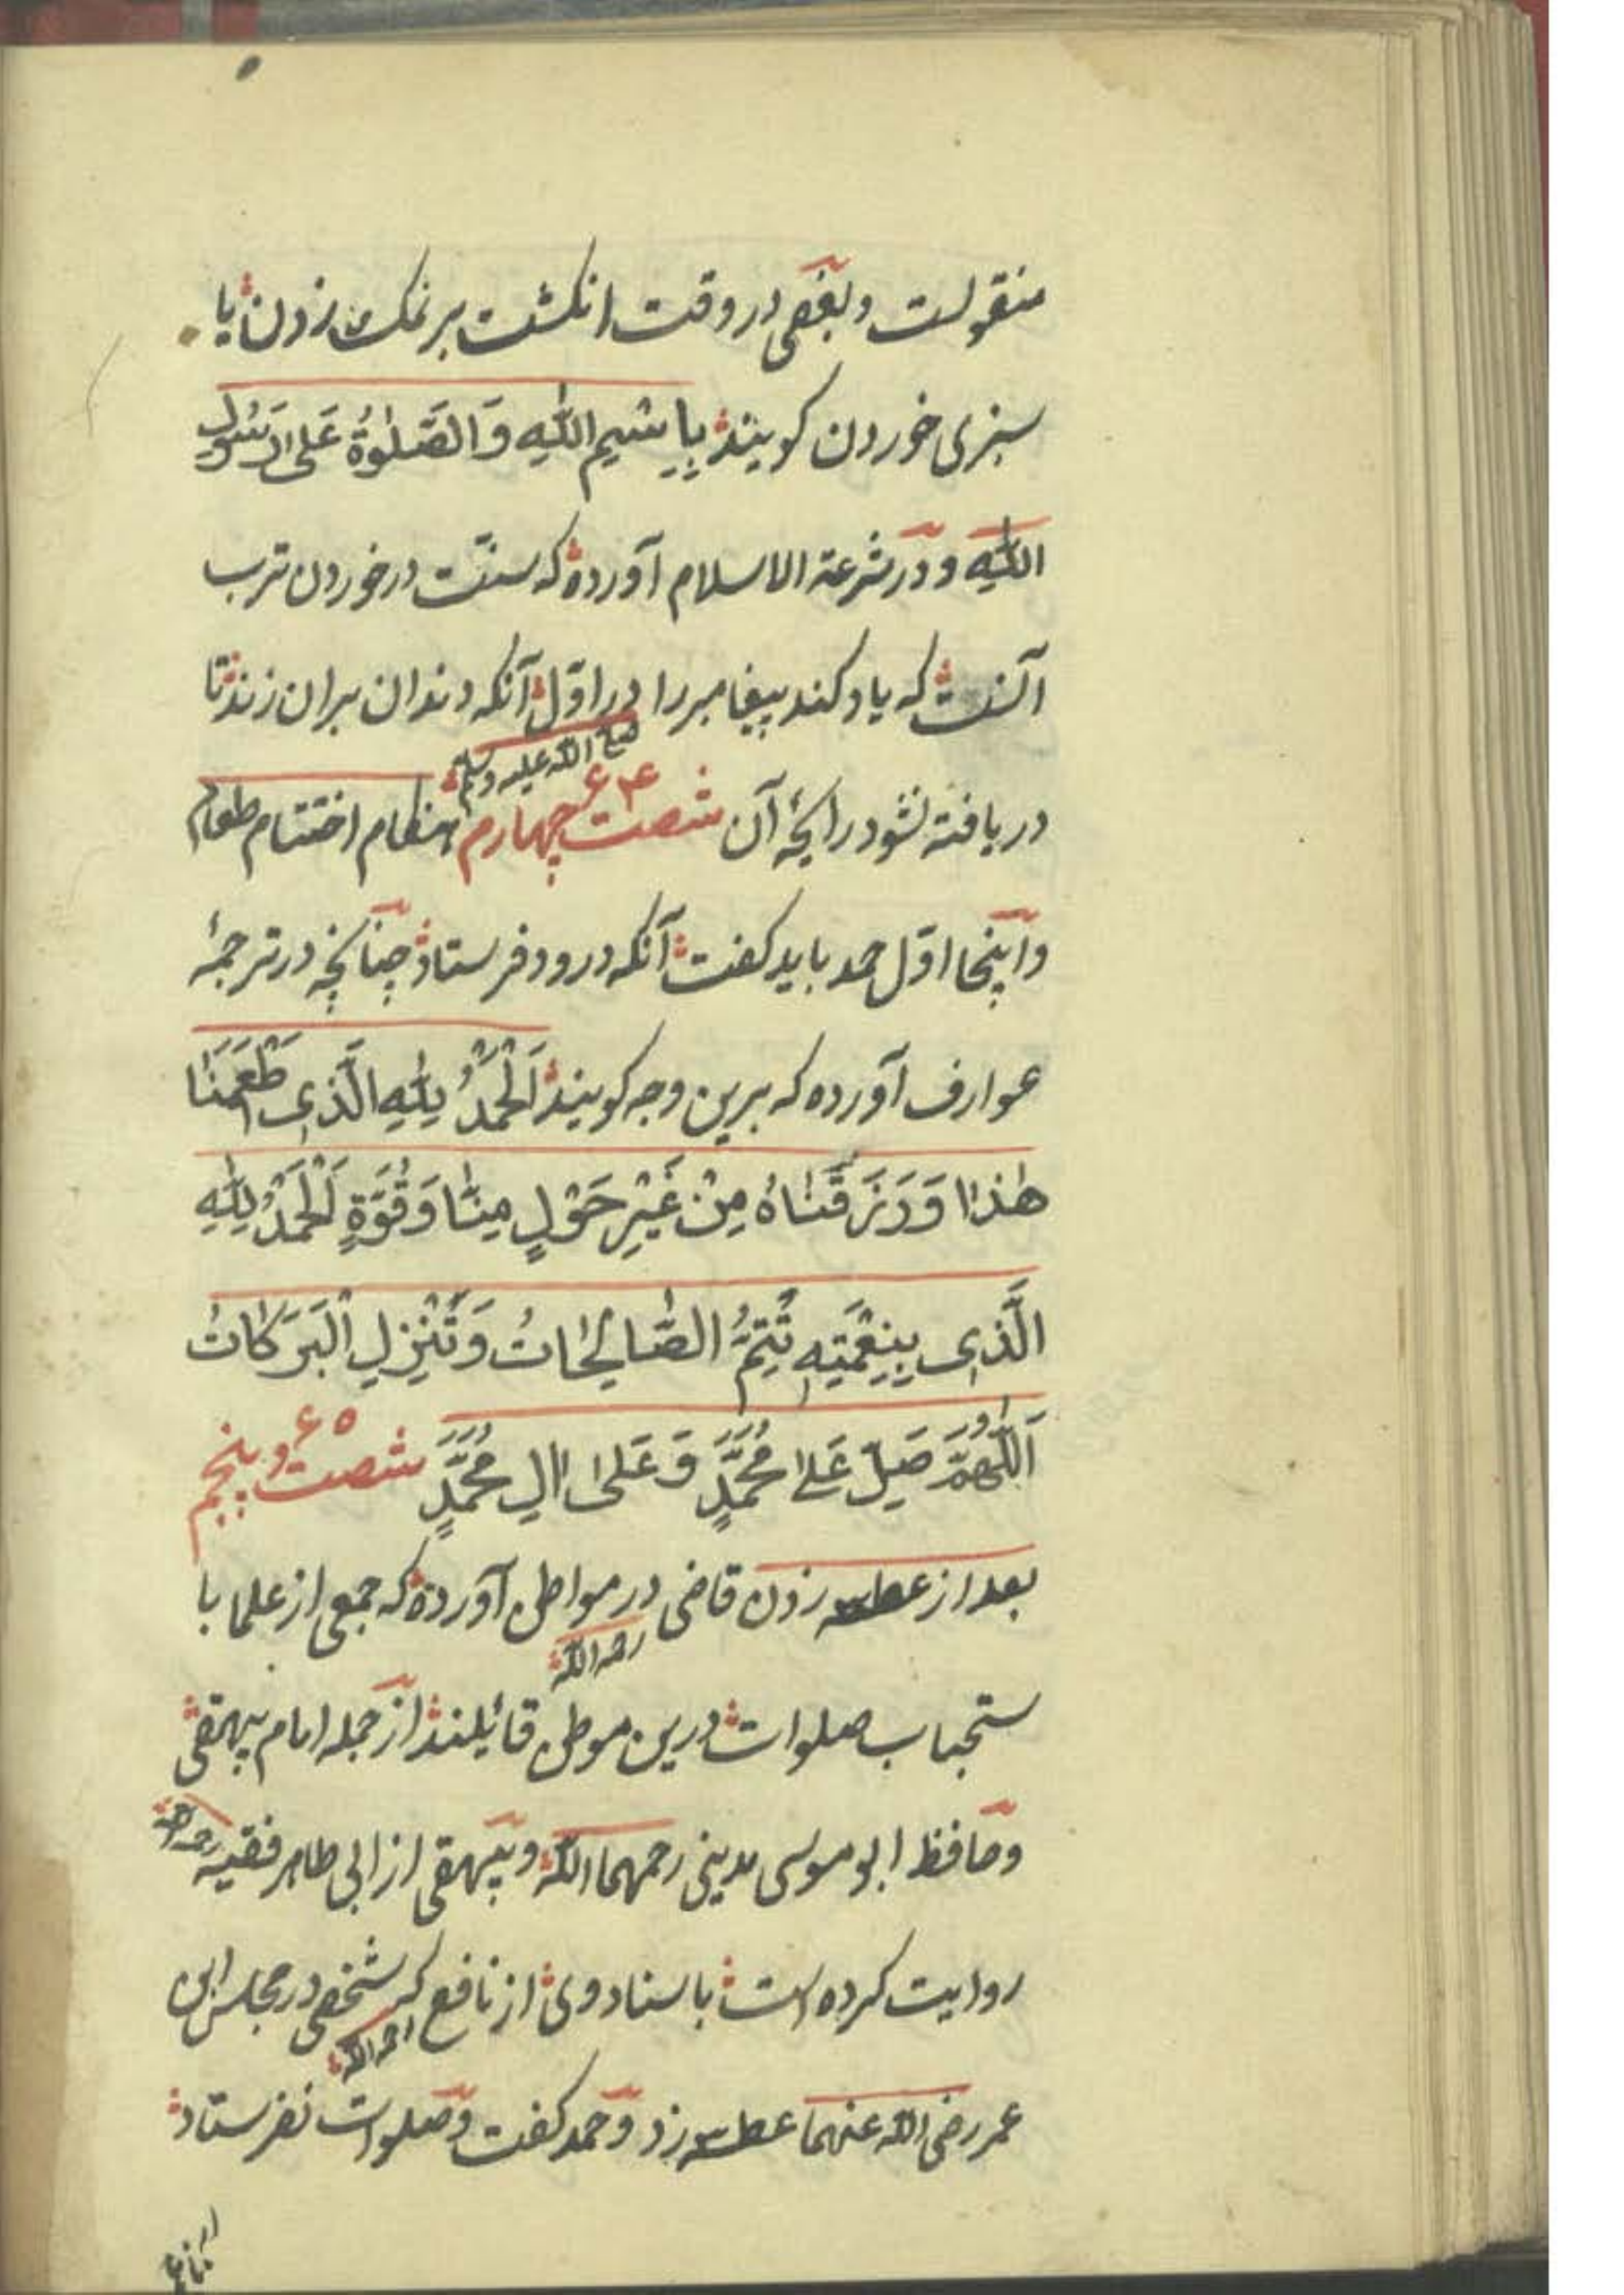 منقولست وبعضی در وقت انکشت بر نمک زدن یا
سبزی خوردن کویند بِاسْمِ اللّٰهِ وَالصَّلٰوةُ عَلیٰ رَسُولِ
اللّٰهِ ودر شرعة الاسلام آورده که سنّت در خوردن ترب
آنست که یاد کند پیغامبر را در اوّل آنکه دندان بران زند تا
صلی اللّه علیه وسلم
۶۴
دریافته نشود رائحۀ آن شصت چهارم هنکام اختتام طعام
واینجا اوّل حمد باید کفت آنکه درود فرستاد چنانچه در ترجمۀ
عوارف آورده که برین وجه کویند اَلْحَمْدُ لِلّٰهِ الَّذِی اَطْعَمَنَا
هٰذَا وَرَزَقَنَاهُ مِنْ غَیْرِ حَوْلٍ مِنَّا وَقُوَّةٍ اَلْحَمْدُ لِلّٰهِ
الَّذِی بِنِعْمَتِهِ تَتِمُّ الصَّالِحَاتُ وَتَنْزِلِ الْبَرَکَاتُ
۶۵
اَللّٰهُمَّ صَلِّ عَلیٰ مُحَمَّدٍ وَعَلیٰ اٰلِ مُحَمَّدٍ شصت و پنجم
بعد از عطسه زدن قاضی در مواطن آورده که جمعی از علما با
رحمه اللّه
ستحباب صلوات درین موطن قائیلند از جمله امام بیهقی
وحافظ ابو موسی مدینی رحمهما اللّه وبیهقی از ابی طاهر فقیه رحمه اللّه
روایت کرده است باسناد وی از نافع که شخصی در مجلس ابن
رحمه اللّه
عمر رضی اللّه عنهما عطسه زد وحمد کفت وصلوات نفرستاد